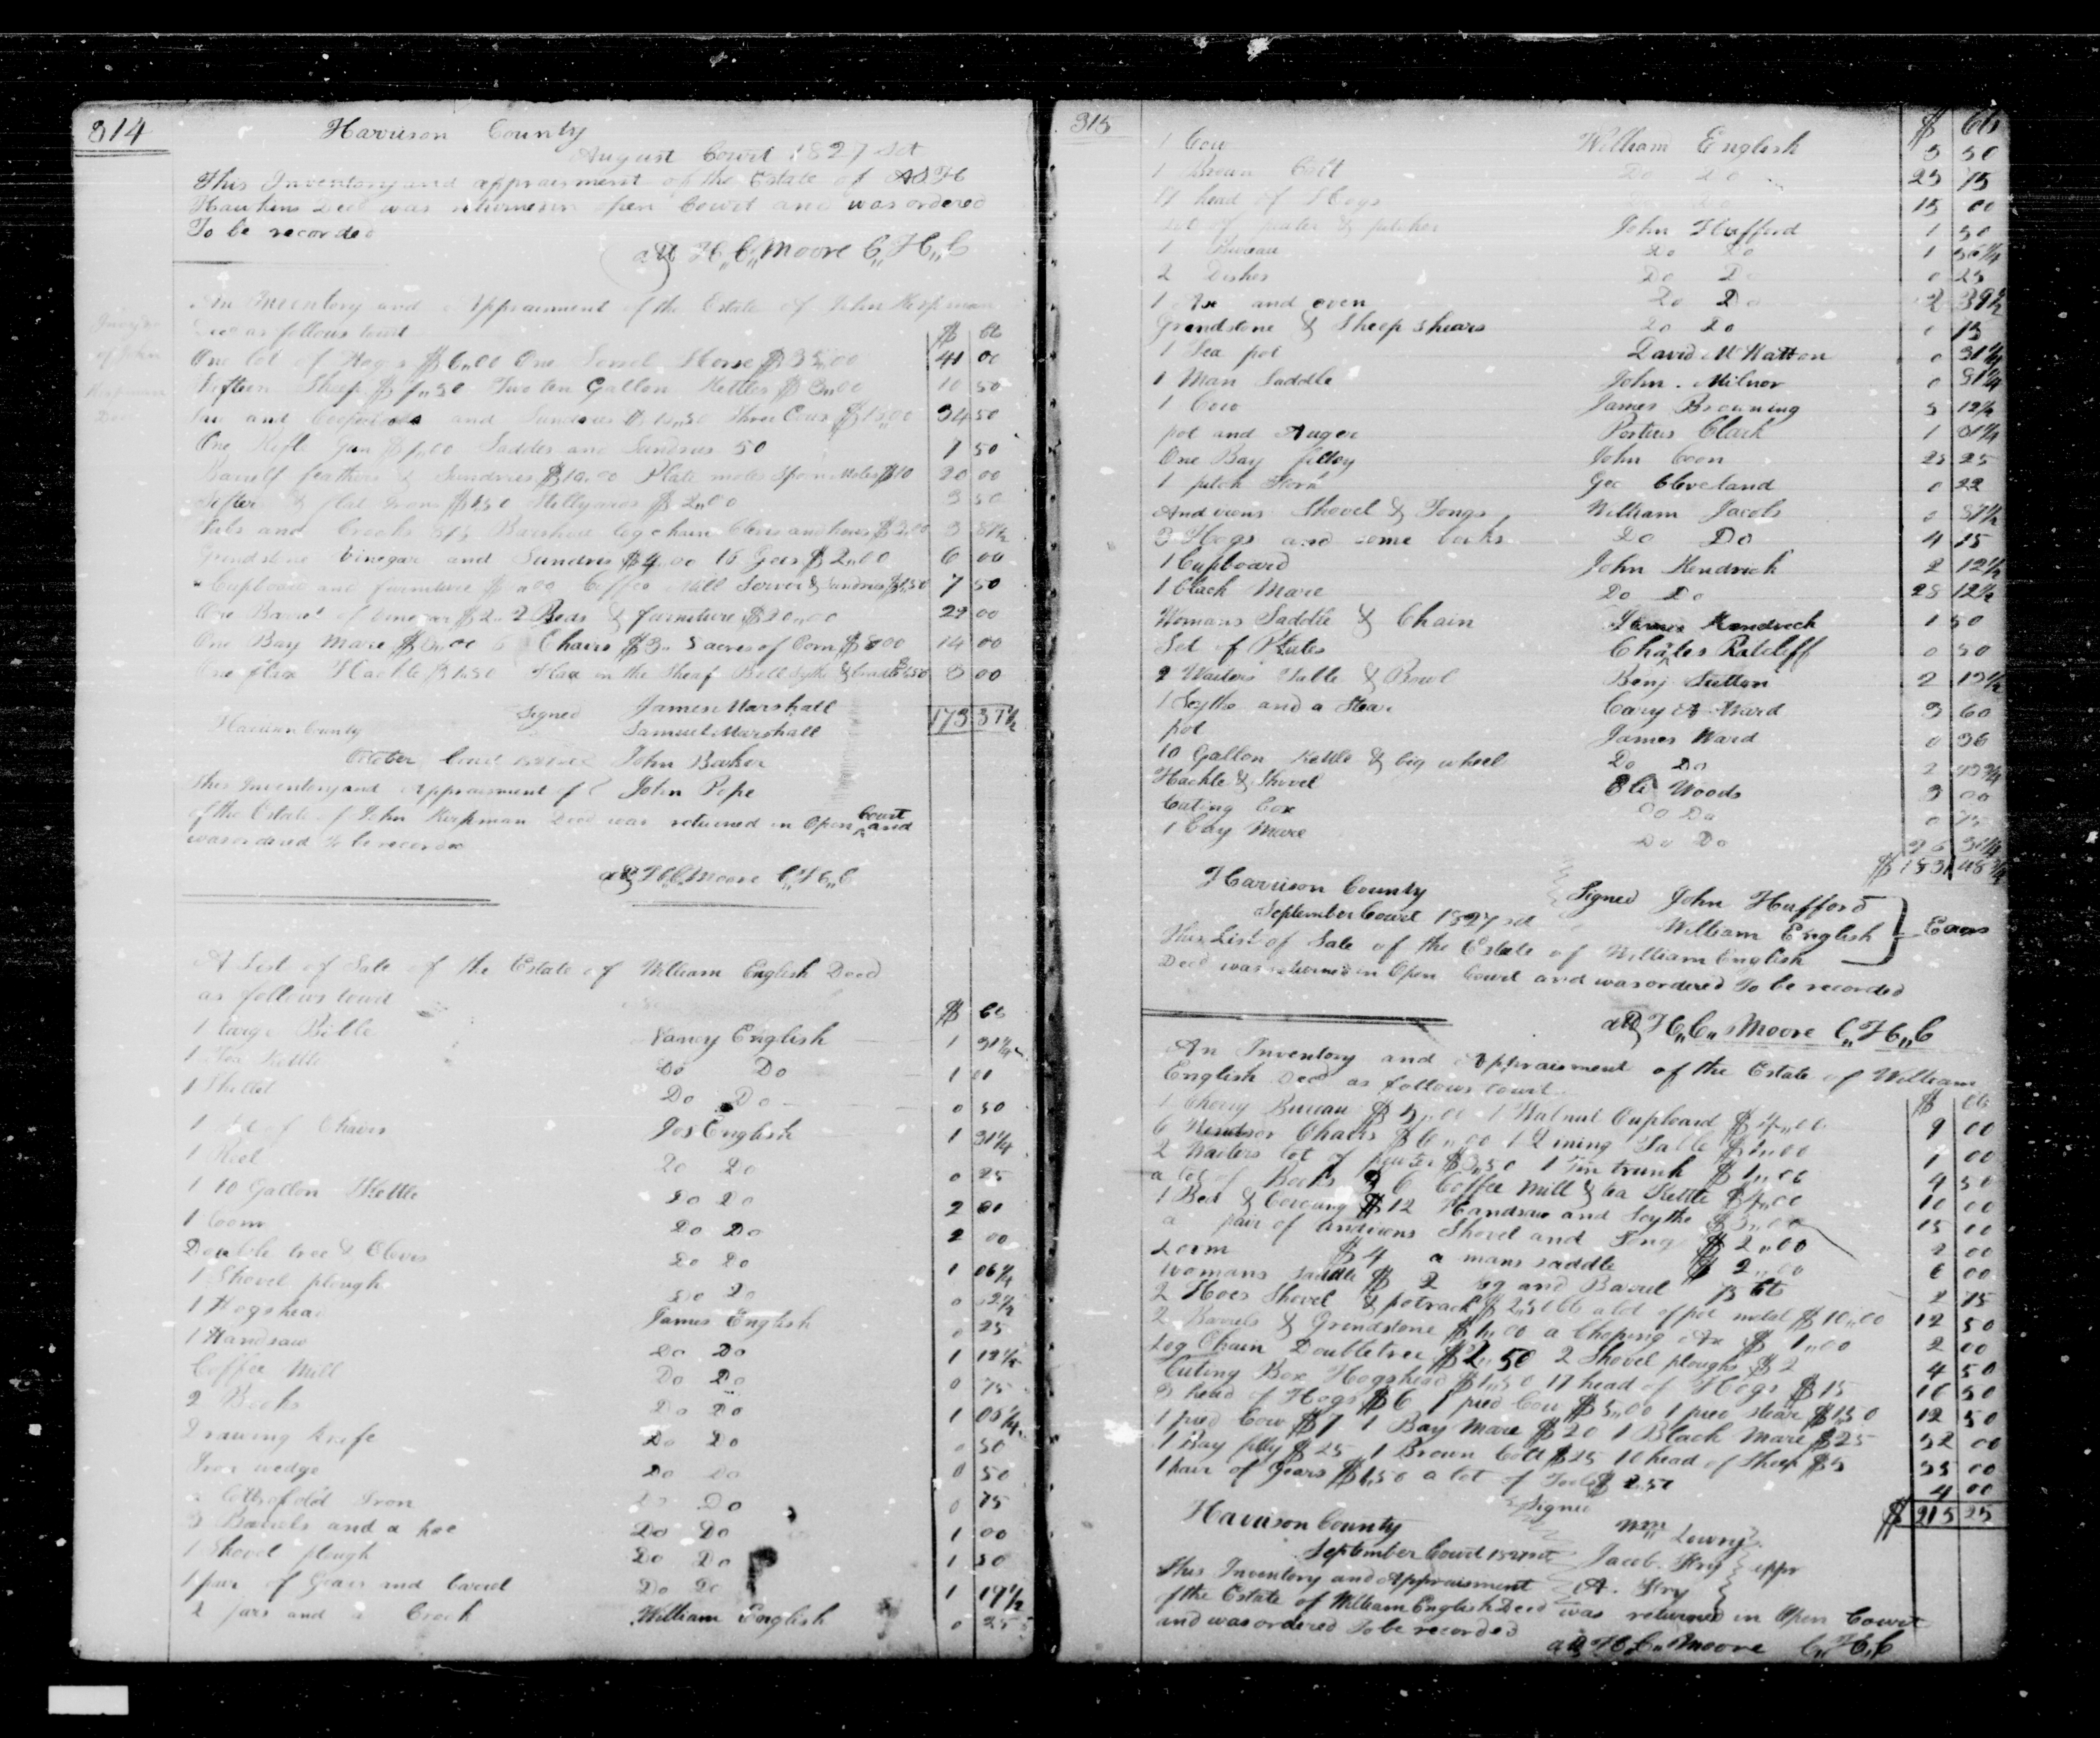 314
Harrison County
August Court 1827 Sct
This Inventory and appraisment of the Estate of
Hawkins Decd was returned in open Court and was ordered
To be recorded
att H,,C,,Moore C,,H,,C
An Inventory and Appraisment of the Estate of John Kirpman
Decd as follows towit
Invty
of John
Kirpman
Decd
$ cts
One lot of Hogs $6,,00 One Sorrel Horse $35,,00 41 00
Fifteen Sheep $7,,50 Two ten Gallon Kettles $3,,00 10 50
and Sundries Three Cows $15,,00 34 50
One Rifle Gun $7,,00 Saddles and Sundries 50 7 50
feathers & Sundries $10,,00 Plate moles Spoon Moles $10 20 00
Sifter & flat Irons $1,50 Stillyards $2,,00 3 50
Tubs and Crocks log chain Clevis and 3
Grindstone Vinegar and Sundries $4,,00 16 Gees $2,,00 6 00
Cupboard and furniture Coffee Mill Server & Sundries 7 50
One Barrel of Vinegar $2,, 2 Beds & furniture $20,,00 22 00
One Bay Mare 6 Chairs $3,, 5 acres of Corn $8,00 14 00
One flax Hackle $1,50 Flax in the Sheaf Bell Sythe & Cradle 3 00
Signed James Marshall 173 37½
Harrison County Samuel Marshall
October Court John Baker
This Inventory and Appraisment John Pope
of the Estate of John Kirpman Decd was returned in Open Court and
was ordered To be recorded
att H,,C,,Moore C,,H,,C
A List of Sale of the Estate of William English Decd
as follows towit
$ cts
1 large Bible Nancy English 1 31¼
1 Tea Kettle Do Do 1 01
1 Skillet Do Do 0 50
1 Set of Chairs Jos English 1 31¼
1 Reel Do Do 0 25
1 10 Gallon Kettle Do Do 2 00
1 Loom Do Do 2 00
Double tree & Clevis Do Do 1 06¼
1 Shovel plough Do Do 0
1 Hogshead James English 0 25
1 Handsaw Do Do 1 12½
Coffee Mill Do Do 0 75
2 Books Do Do 1 06¼
Drawing Knife Do Do 0 50
Iron wedge Do Do 0 50
Lott of old Iron Do Do 0 75
3 Barrels and a hoe Do Do 1 00
1 Shovel plough Do Do 1 50
1 pair of Gears and barrel Do Do 1 19½
2 jars and a Crock William English 0 25
315
$ Cts
1 Cow William English 5 50
1 Brown Colt Do Do 25 75
17 head of Hogs 15 00
Lot of pewter & pitcher John Hufford 1 50
1 Bureau Do Do 1 56¼
2 Dishes Do Do 0 25
1 Axe and oven Do Do 2 39½
Grindstone & Sheep Shears Do Do 0 75
1 Tea pot David McKatton 0 31¼
1 Man Saddle John Milnor 0 31¼
1 Cow James Browning 5 12½
pot and Auger Porteus Clark 1 01¼
One Bay filley John Coon 25 25
1 pitch Fork Geo Cleveland 0 22
Andirons Shovel & Tongs William Jacobs 0 87½
3 Hogs and some Do Do 4 75
1 Cupboard John Kendrick 2 12½
1 black Mare Do Do 28 12½
Womans Saddle & Chain James Kendrick 1 50
Set of Plates Charles Ratcliff 0 50
2 Waiters Table & Bowl Benj Sutton 2 12½
1 Scythe and a Stear Cary A Ward 3 60
pot James Ward 0 36
10 Gallon Kettle & big wheel Do Do 2
Hackle & Shovel Eli Woods 3 00
Cuting box Do Do 0 75
1 bay Mare Do Do 26 31¼
$183,48¾
Harrison County Signed John Hufford
September Court 1827 sct William English Exors
This List of Sale of the Estate of William English
Decd was returned in Open Court and was ordered To be recorded
att H,,C,,Moore C,,H,,C
An Inventory and Appraisment of the Estate of William
English Decd as follows towit
$ cts
1 Cherry Bureau $5,,00 1 Walnut Cupboard $4,,00 9 00
6 Windsor Chairs $6,,00 1 Dining Table $1,,00 7 00
2 Waiters lot of pewter $3,50 1 Tin trunk $1,,00 4 50
a lot of Books $6 Coffee Mill & tea Kettle $4,,00 10 00
1 Bed & Covering $12 Handsaw and Scythe $3,,00 15 00
a pair of andirons Shovel and Tongs $2,,00 2 00
Loom $4 a mans saddle $2,,00 6 00
Womans Saddle $2 keg and Barrel 75 cts 2 75
2 Hoes Shovel & potrack $2,50 cts a lot of pot metal $10,,00 12 50
2 Barrels & Grindstone $1,,00 a Choping Ax $1,,00 2 00
Log Chain Doubletree $2,,50 2 Shovel ploughs $2 4 50
Cuting Box Hogshead $1,50 17 head of Hogs $15 16 50
3 head of Hogs $6 1 pied Cow $5,,00 1 pied Stear $1,50 12 50
1 pied Cow $7 1 Bay Mare $20 1 Black Mare $25 52 00
1 Bay filly $25 1 Brown Colt $25 10 head of Sheep $5 55 00
1 pair of Gears $1,50 a lot of Tools $2,50 4 00
Signed $215 25
Harrison County Wm Lowry
September Court 1827 sct Jacob Fry appr
This Inventory and Appraisment A. Fry
of the Estate of William English Decd was returned in Open Court
and was ordered To be recorded
att H,,C,,Moore C,,H,,C